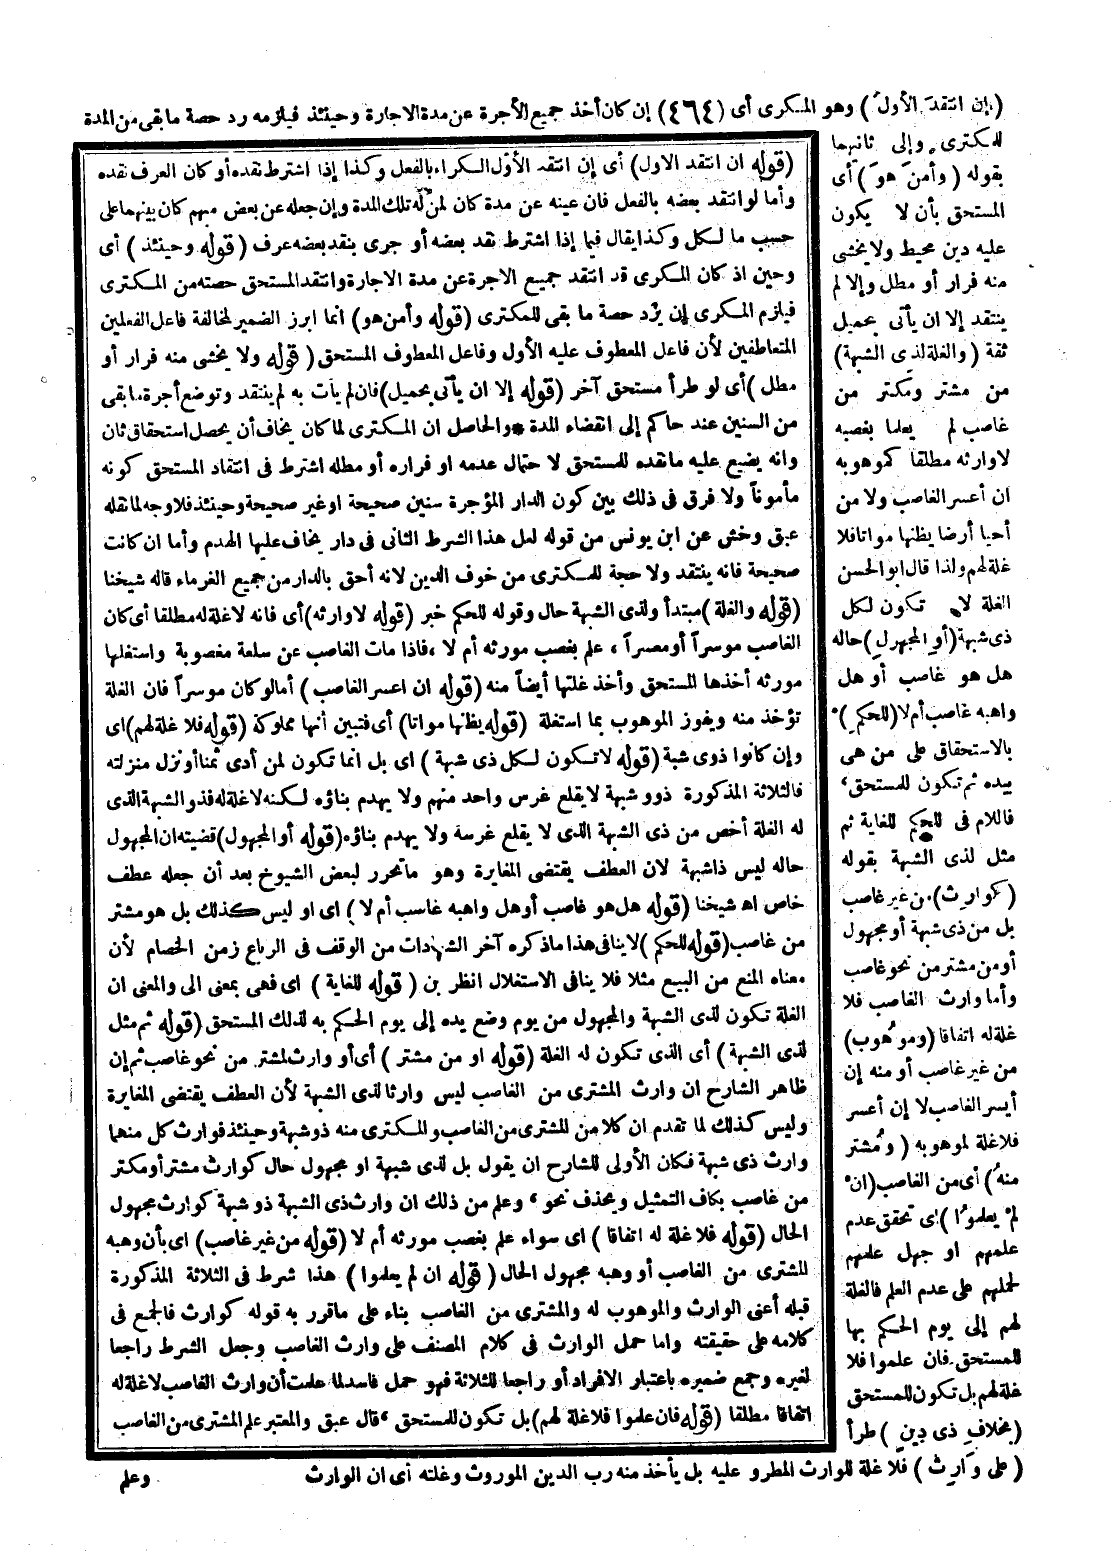 (إن انتقدَ الأولُ) وهو المكرى أى (٤٦٤) إن كان أخذ جميع الأجرة عن مدة الاجارة وحينئذ فيلزمه رد حصة ما بقى من المدة
للمكترى وإلى ثانيهما
بقوله (وأمنَ هوَ) أى
المستحق بأن لا يكون
عليه دين محيط ولا يخشى
منه فرار أو مطل وإلا لم
ينتقد إلا ان يأتى بحميل
ثقة (والغلة لذى الشبهة)
من مشتر ومكتر من
غاصب لم يعلما بغصبه
لا وارثه مطلقا كموهوبه
ان أعسر الغاصب ولا من
أحيا أرضا يظنها مواتا فلا
غلة لهم ولذا قال ابو الحسن
الغلة لا تكون لكل
ذى شبهة (أو المجهولِ) حاله
هل هو غاصب أو هل
واهبه غاصب أم لا (للحكمِ)
بالاستحقاق على من هى
بيده ثم تكون للمستحق،
فاللام فى للحكم للغاية ثم
مثل لذى الشبهة بقوله
(كوارثٍ) من غير غاصب
بل من ذى شبهة أو مجهول
أو من مشتر من نحو غاصب
وأما وارث الغاصب فلا
غلة له اتفاقا (وموْهُوب)
من غير غاصب أو منه إن
أيسر الغاصب لا إن أعسر
فلا غلة لموهوبه (ومُشتر
منهُ) أى من الغاصب (انْ
لمْ يعلمُوا) اى تحقق عدم
علمهم او جهل علمهم
لحملهم على عدم العلم فالغلة
لهم إلى يوم الحكم بها
للمستحق فان علموا فلا
غلة لهم بل تكون للمستحق
(بخلافِ ذى دينٍ) طرأ
(على وَارِث) فلا غلة للوارث المطرو عليه بل يأخذ منه رب الدين الموروث وغلته أى ان الوارث
(قوله ان انتقد الاول) أى إن انتقد الأول الكراء بالفعل وكذا إذا اشترط نقده أو كان العرف نقده
وأما لو انتقد بعضه بالفعل فان عينه عن مدة كان لمن له تلك المدة وإن جعله عن بعض مبهم كان بينهما على
حسب ما لكل وكذا يقال فيما إذا اشترط نقد بعضه أو جرى بنقد بعضه عرف (قوله وحينئذ) أى
وحين اذ كان المكرى قد انتقد جميع الاجرة عن مدة الاجارة وانتقد المستحق حصته من المكترى
فيلزم المكرى إن يرد حصة ما بقى للمكترى (قوله وأمن هو) انما ابرز الضمير لمخالفة فاعل الفعلين
المتعاطفين لأن فاعل المعطوف عليه الأول وفاعل المعطوف المستحق (قوله ولا يخشى منه فرار أو
مطل) أى لو طرأ مستحق آخر (قوله إلا ان يأتى بحميل) فان لم يأت به لم ينتقد وتوضع أجرة ما بقى
من السنين عند حاكم إلى انقضاء المدة * والحاصل ان المكترى لما كان يخاف أن يحصل استحقاق ثان
وانه يضيع عليه ما نقده للمستحق لا حتمال عدمه او فراره أو مطله اشترط فى انتقاد المستحق كونه
مأموناً ولا فرق فى ذلك بين كون الدار المؤجرة سنين صحيحة او غير صحيحة وحينئذ فلا وجه لما نقله
عبق وخش عن ابن يونس من قوله لعل هذا الشرط الثانى فى دار يخاف عليها الهدم وأما ان كانت
صحيحة فانه ينتقد ولا حجة للمكترى من خوف الدين لانه أحق بالدار من جميع الغرماء قاله شيخنا
(قوله والغلة) مبتدأ ولذى الشبهة حال وقوله للحكم خبر (قوله لا وارثه) أى فانه لا غلة له مطلقا أى كان
الغاصب موسراً أو معسراً، علم بغصب مورثه أم لا، فاذا مات الغاصب عن سلعة مغصوبة واستغلها
مورثه أخذها المستحق وأخذ غلتها أيضاً منه (قوله ان اعسر الغاصب) أما لو كان موسراً فان الغلة
تؤخذ منه ويفوز الموهوب بما استغله (قوله يظنها مواتا) أى فتبين أنها مملوكة (قوله فلا غلة لهم) اى
وإن كانوا ذوى شبهة (قوله لا تكون لكل ذى شبهة) اى بل انما تكون لمن أدى ثمنا أو نزل منزلته
فالثلاثة المذكورة ذوو شبهة لا يقلع غرس واحد منهم ولا يهدم بناؤه لكنه لا غلة له فذو الشبهة الذى
له الغلة أخص من ذى الشبهة الذى لا يقلع غرسه ولا يهدم بناؤه (قوله أو المجهول) قضيته ان المجهول
حاله ليس ذا شبهة لان العطف يقتضى المغايرة وهو ما تحرر لبعض الشيوخ بعد أن جعله عطف
خاص اهـ شيخنا (قوله هل هو غاصب أو هل واهبه غاسب أم لا) اى او ليس كذلك بل هو مشتر
من غاصب (قوله للحكم) لا ينافى هذا ما ذكره آخر الشهادات من الوقف فى الرباع زمن الخصام لأن
معناه المنع من البيع مثلا فلا ينافى الاستغلال انظر بن (قوله للغاية) اى فهى بمعنى الى والمعنى ان
الغلة تكون لذى الشبهة والمجهول من يوم وضع يده إلى يوم الحكم به لذلك المستحق (قوله ثم مثل
لذى الشبهة) أى الذى تكون له الغلة (قوله او من مشتر) أى أو وارث لمشتر من نحو غاصب ثم إن
ظاهر الشارح ان وارث المشترى من الغاصب ليس وارثا لذى الشبهة لأن العطف يقتضى المغايرة
وليس كذلك لما تقدم ان كلا من المشترى من الغاصب والمكترى منه ذو شبهة وحينئذ فوارث كل منهما
وارث ذى شبهة فكان الأولى للشارح ان يقول بل لذى شبهة او مجهول حال كوارث مشتر أو مكتر
من غاصب بكاف التمثيل ويحذف نحو، وعلم من ذلك ان وارث ذى الشبهة ذو شبهة كوارث مجهول
الحال (قوله فلا غلة له اتفاقا) اى سواء علم بغصب مورثه أم لا (قوله من غير غاصب) اى بأن وهبه
المشترى من الغاصب أو وهبه مجهول الحال (قوله ان لم يعلموا) هذا شرط فى الثلاثة المذكورة
قبله أعنى الوارث والموهوب له والمشترى من الغاصب بناء على ما قرر به قوله كوارث فالجمع فى
كلامه على حقيقته واما حمل الوارث فى كلام المصنف على وارث الغاصب وجعل الشرط راجعا
لغيره وجمع ضميره باعتبار الافراد أو راجعا للثلاثة فهو حمل فاسد لما علمت أن وارث الغاصب لا غلة له
اتفاقا مطلقا (قوله فان علموا فلا غلة لهم) بل تكون للمستحق، قال عبق والمعتبر علم المشترى من الغاصب
وعلم